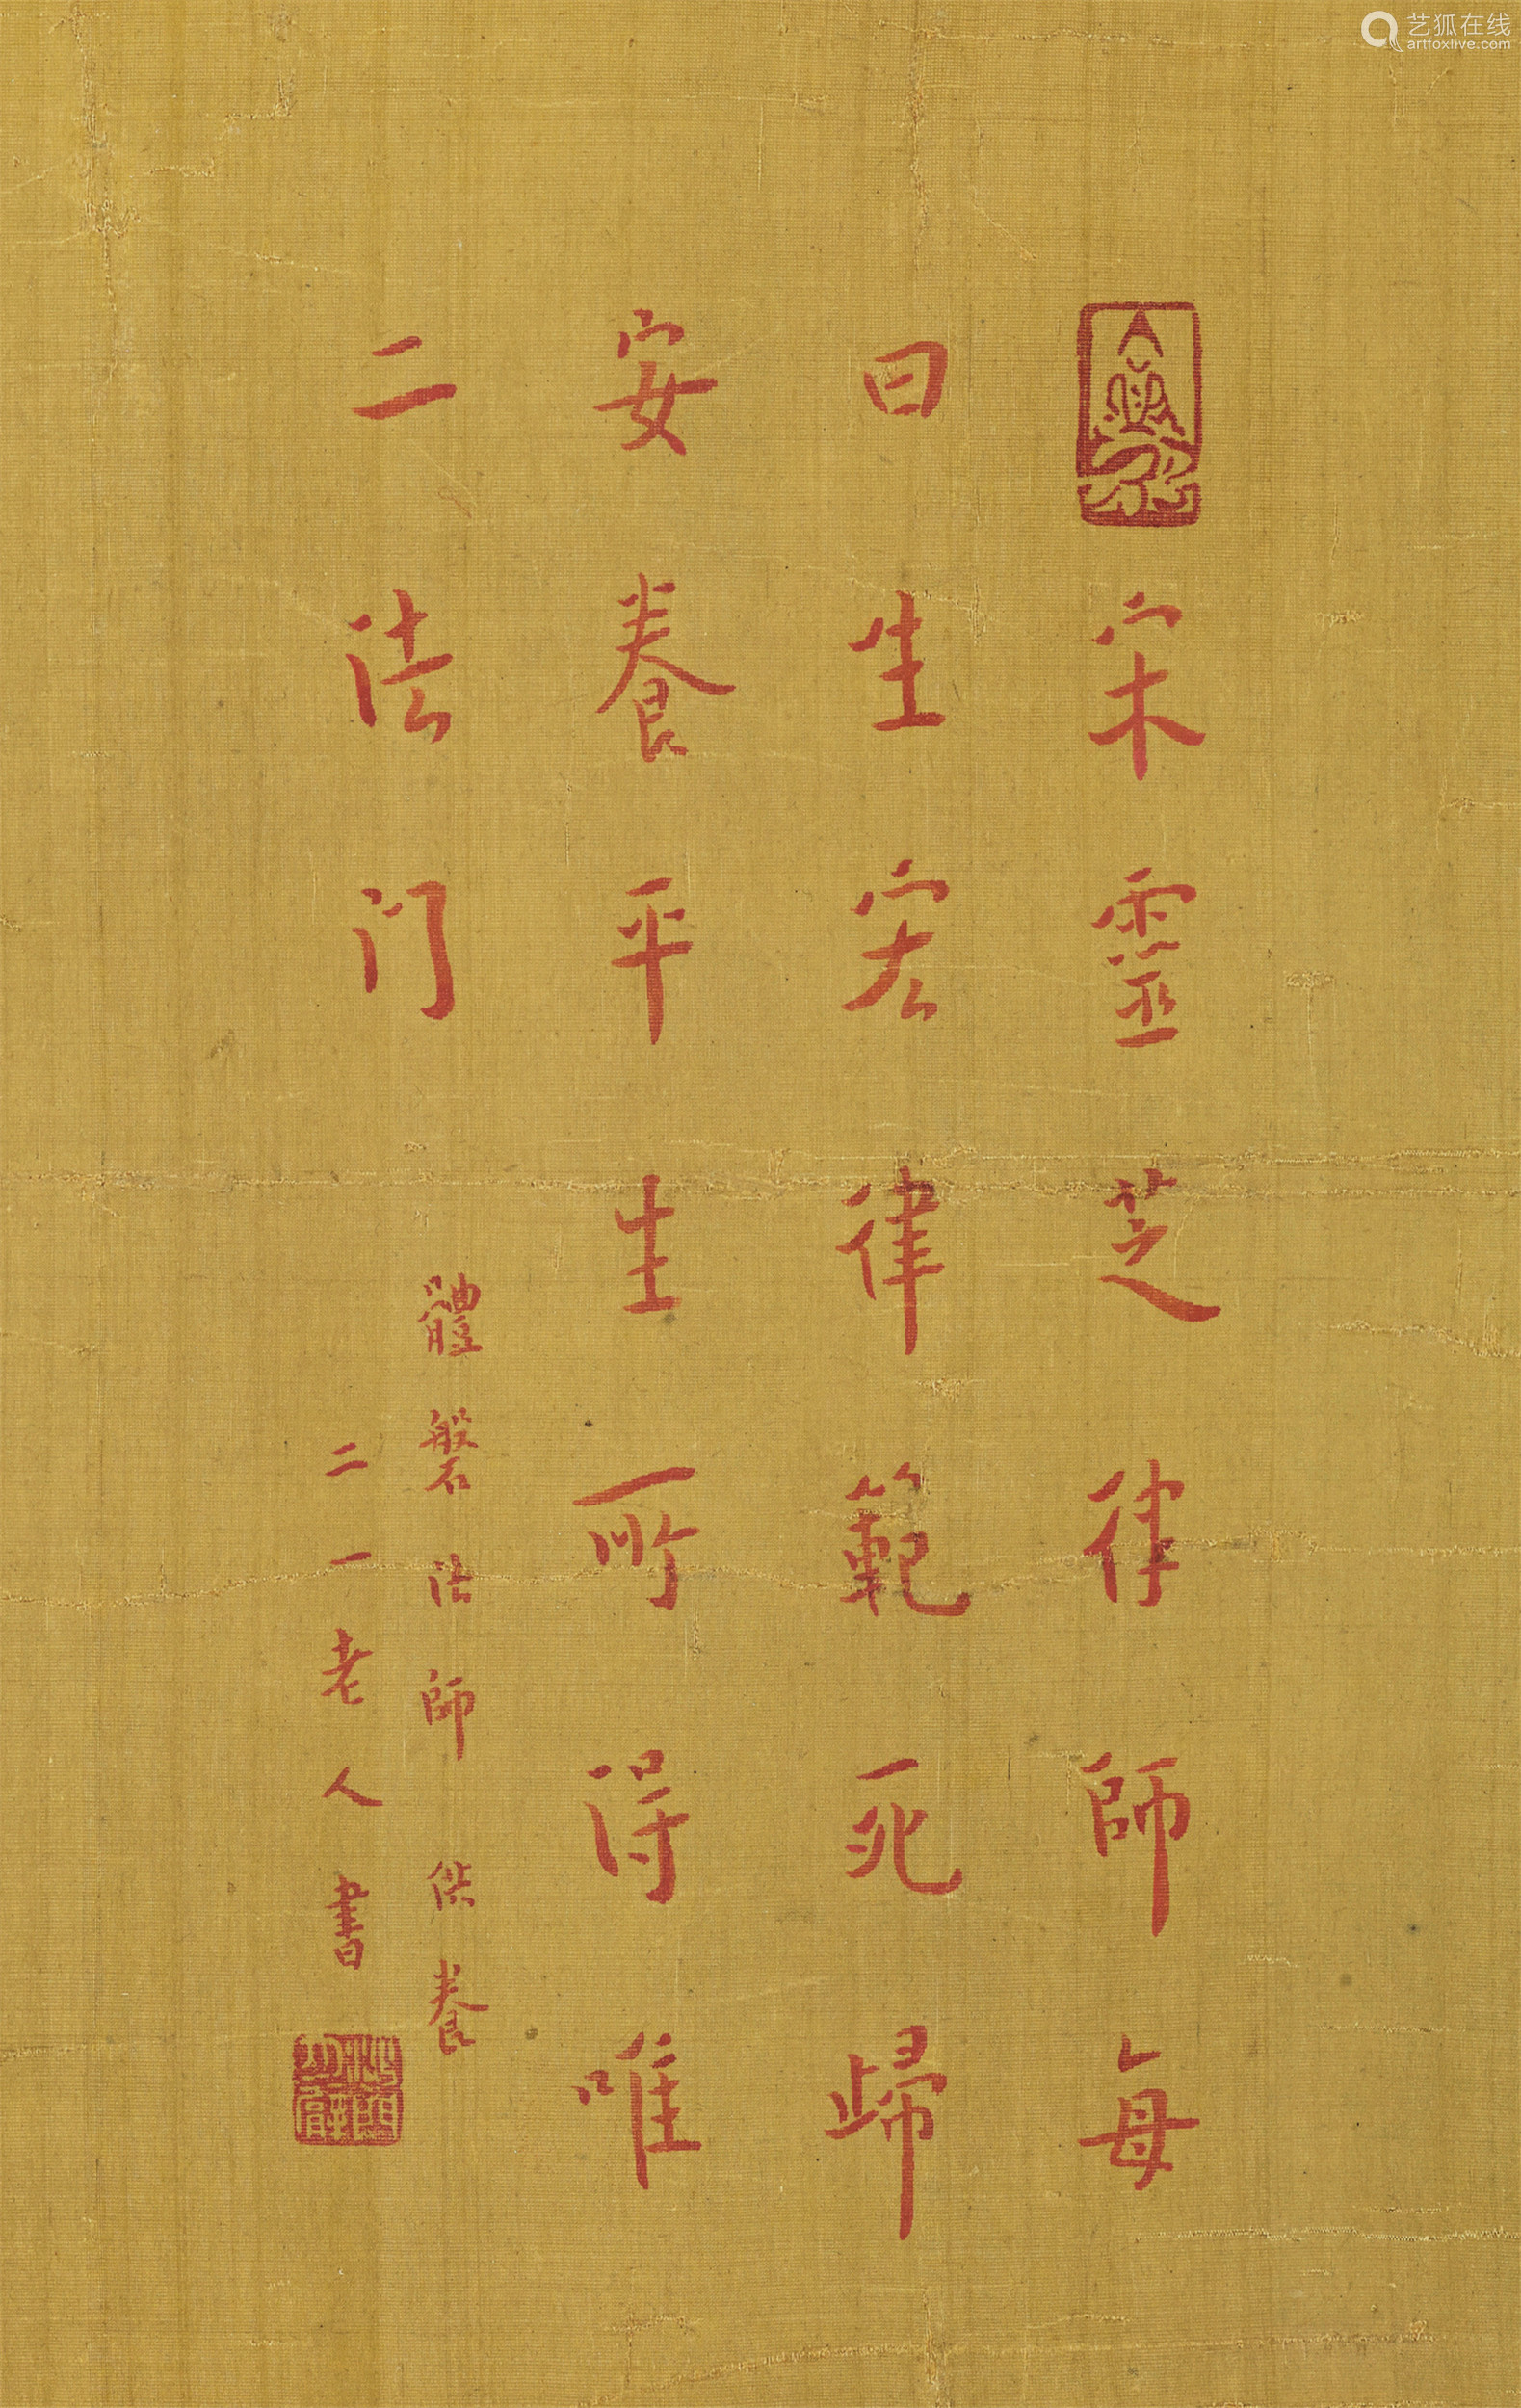 艺狐在线
artfoxlive.com
宋靈芝律師每
曰生宏律範死歸
安養平生所得唯
二法门
體磐法師供養
二一老人書